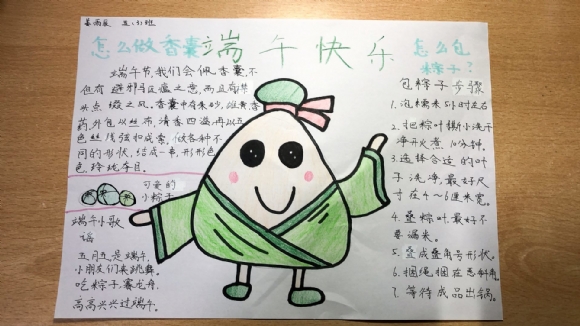 姜雨辰 五(3)班
怎么做香囊
端午快乐
怎么包
粽子?
端午节,我们会佩香囊,不
但有避邪驱瘟之意,而且有襟
头点缀之风。香囊中有朱砂,雄黄,香
药,外包以丝布,清香四溢,再以五
色丝线弦扣成索,做各种不
同的形状,结成一串,形形色
色,玲珑夺目。
可爱的
小粽子
端午小歌
谣
五月五是端午,
小朋友们来跳舞。
吃粽子,赛龙舟,
高高兴兴过端午。
包粽子步骤
1.泡糯米小时左右
2.把粽叶撕小洗干
净开火煮,10分钟。
3.选择合适的叶
子洗净,最好尺
寸在4~6厘米宽。
4.叠粽叶,最好不
要漏米。
5.叠成叠角号形状。
6.捆绳,捆在思斜角。
7.等待成品出锅。